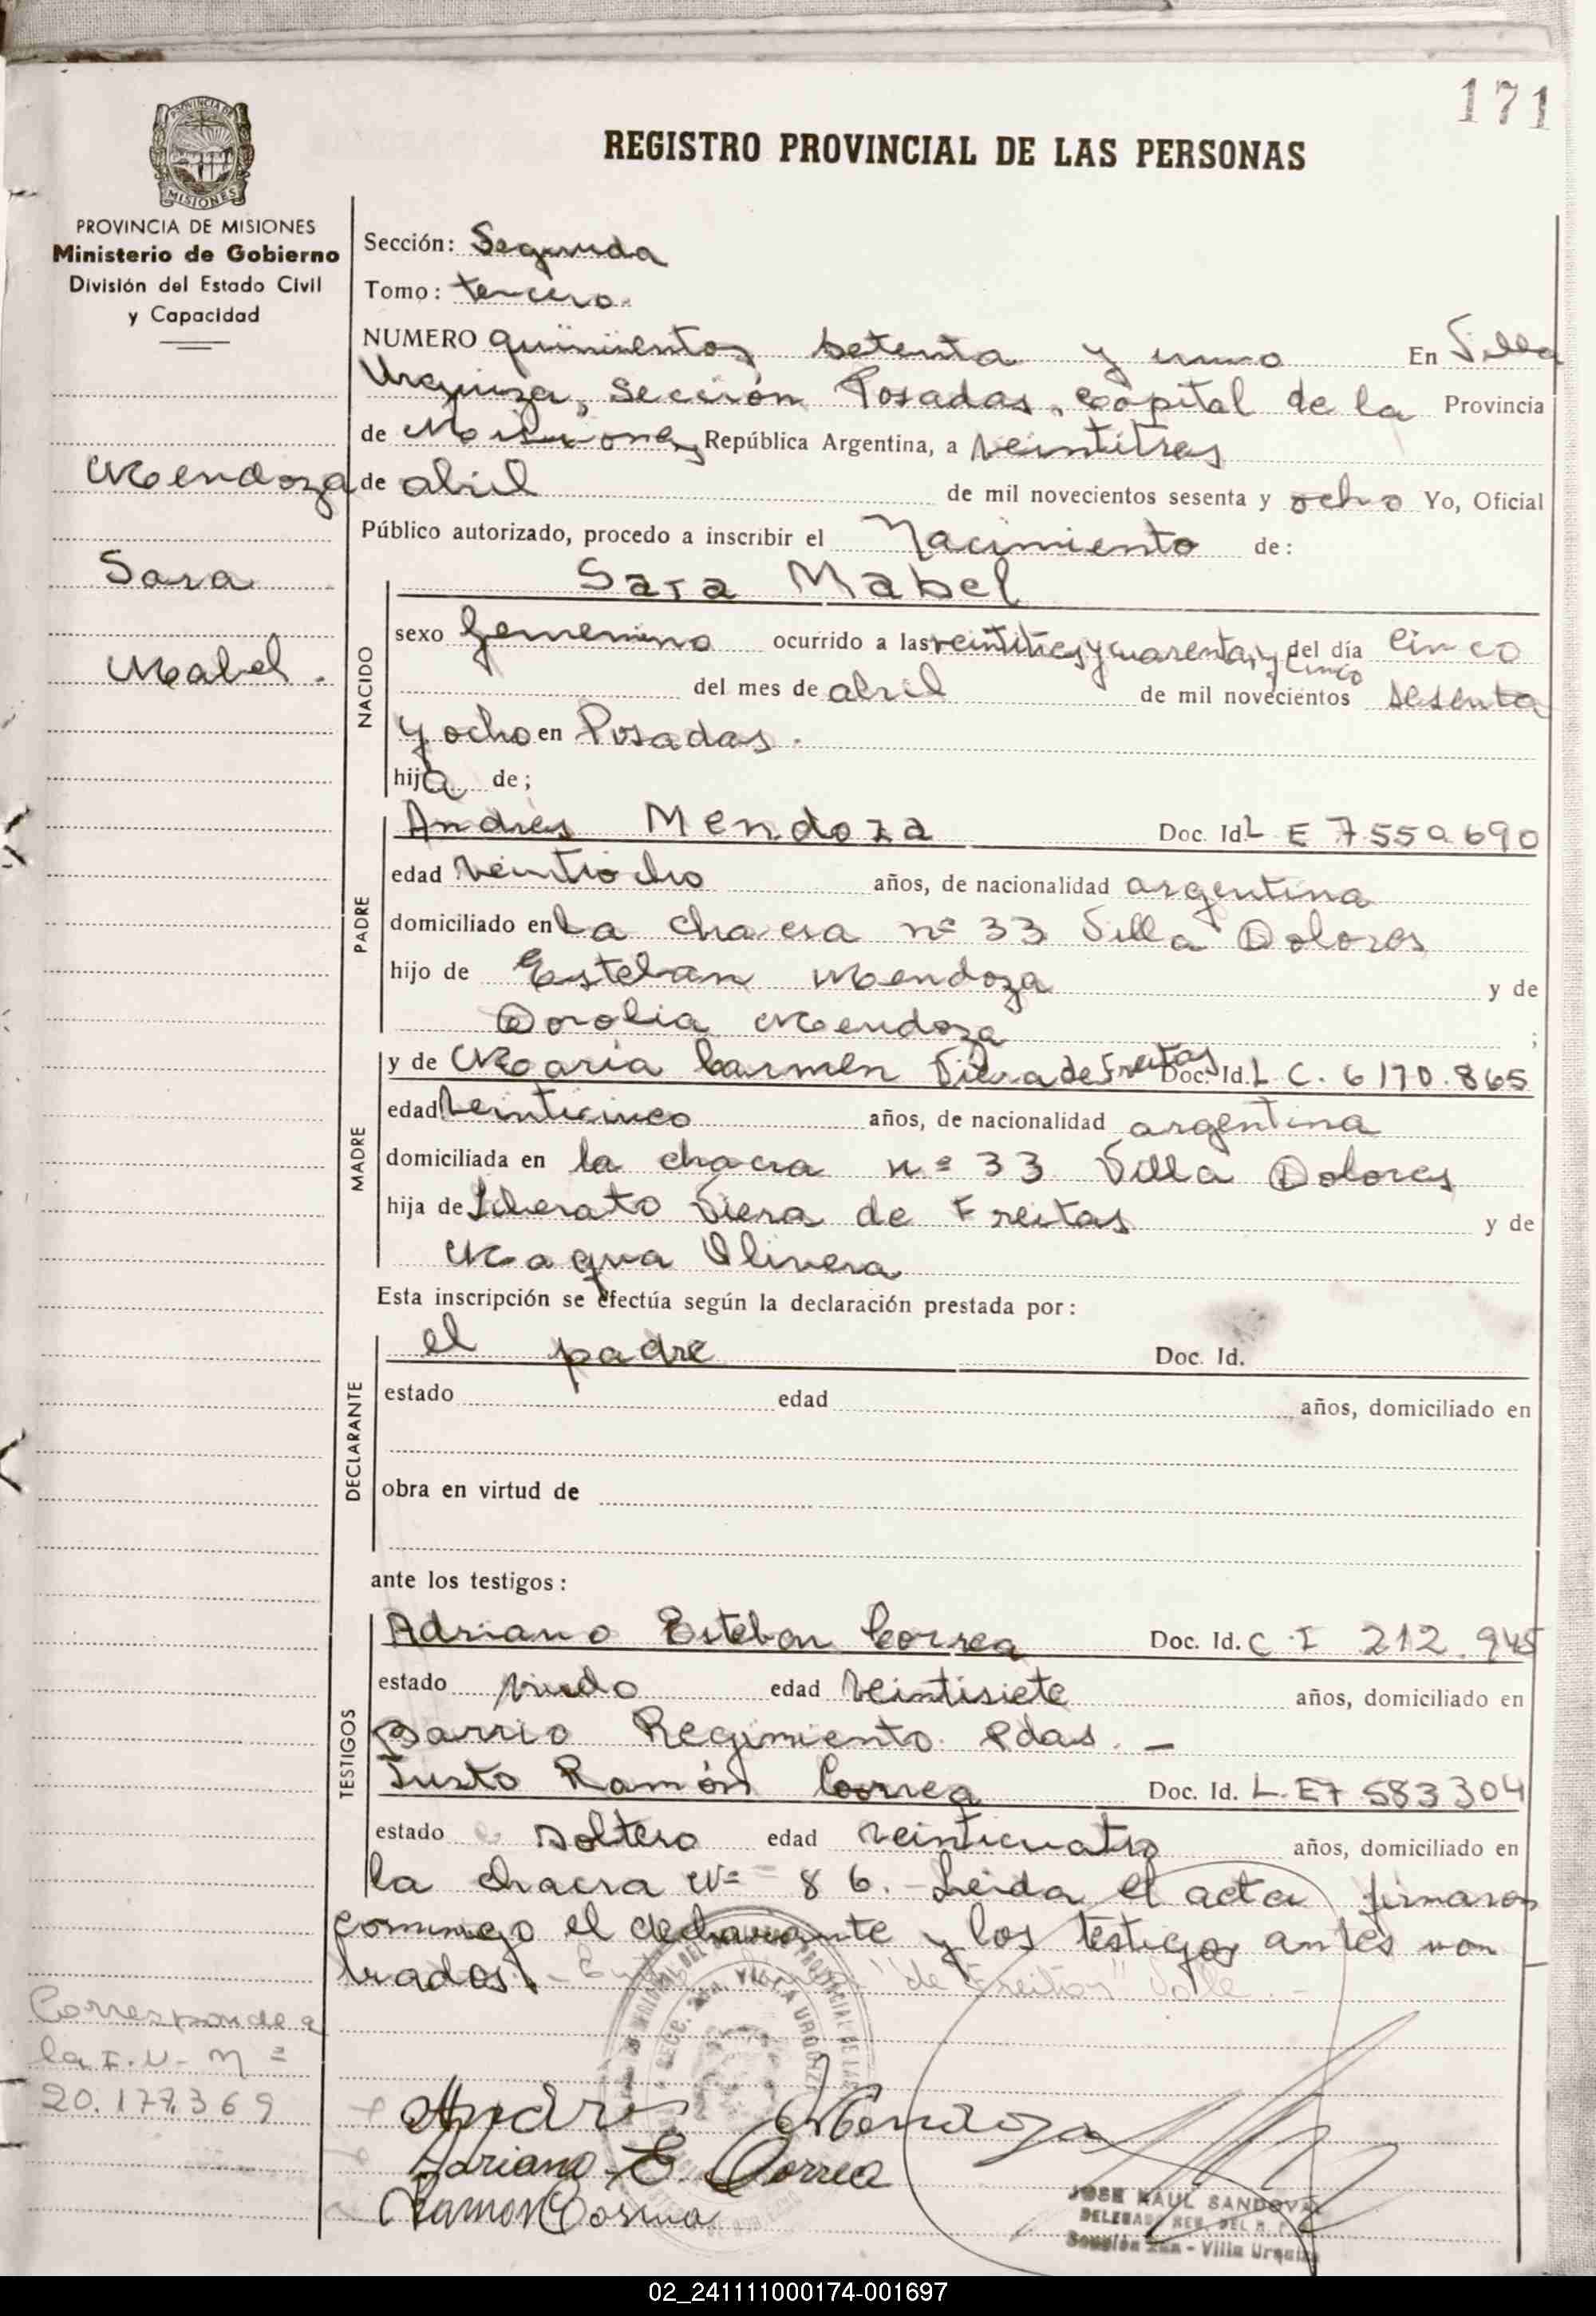 171
REGISTRO PROVINCIAL DE LAS PERSONAS
PROVINCIA DE MISIONES
Ministerio de Gobierno
División del Estado Civil
y Capacidad
Mendoza
Sara
Mabel.
Sección: Segunda
Tomo: tercero.
NUMERO quinientos setenta y uno En Villa
Urquiza, Sección Posadas, Capital de la Provincia
de Misiones República Argentina, a veintitres
de abril de mil novecientos sesenta y ocho Yo, Oficial
Público autorizado, procedo a inscribir el Nacimiento de:
NACIDO
Sara Mabel
sexo femenino ocurrido a las veintitres y cuarenta y cinco del día cinco
del mes de abril de mil novecientos sesenta
y ocho en Posadas.
hija de;
PADRE
Andres Mendoza Doc. Id. L E 7550690
edad veintiocho años, de nacionalidad argentina
domiciliado en La chacra nº 33 Villa Dolores
hijo de Esteban Mendoza y de
Mendoza ;
MADRE
y de Maria Carmen Viera de Freitas Doc. Id. L C. 6170.865
edad veinticinco años, de nacionalidad argentina
domiciliada en la chacra nº 33 Villa Dolores
hija de Liberato Viera de Freitas y de
Olivera
Esta inscripción se efectúa según la declaración prestada por:
DECLARANTE
el padre Doc. Id.
estado edad años, domiciliado en
obra en virtud de
ante los testigos:
TESTIGOS
Adriano Esteban Correa Doc. Id. C I 212.945
estado viudo edad veintisiete años, domiciliado en
Barrio Regimiento Pdas. —
Justo Ramón Correa Doc. Id. L. E 7 583304
estado soltero edad veinticuatro años, domiciliado en
la chacra Nº 86.- Leida el acta firmaron
conmigo el declarante y los testigos antes nom
brados.- "de Freitas" Vale.-
Corresponde a
la I.U- Nº
20.177.369
Andres Mendoza
Adriano E. Correa
Ramon Correa
JOSE RAUL SANDOVAL
Sección 2da - Villa Urquiza
02_241111000174-001697